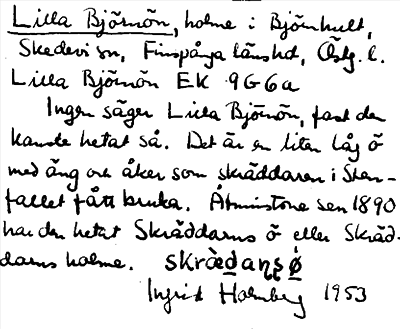 Lilla Björnön, holme i Björnhult,
Skedevi sn, Finspånga länshd, Östg. l.
Lilla Björnön EK 9G6a
Ingen säger Lilla Björnön, fast den
kanske hetat så. Det är en liten låg ö
med äng och åker som skräddaren i Sten-
fallet fått bruka. Åtminstone sen 1890
har den hetat Skräddarns ö eller Skräd-
darns holme. skrædaṇṣ ǿ
Ingrid Holmberg 1953